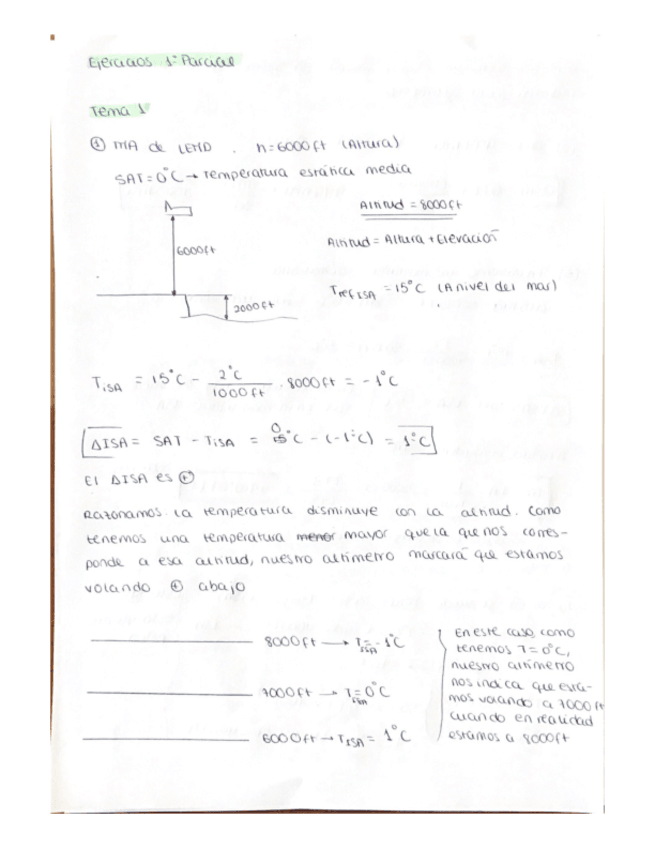 Ejercicios 1º Parcial
Tema 1
① MA de LEMD. h=6000ft (Altura)
SAT=0°C → Temperatura estática media
Altitud = 8000ft
6000ft
Altitud = Altura + Elevación
Tref ISA = 15°C (A nivel del mar)
2000ft
TISA = 15°C - 2°C / 1000ft . 8000ft = -1°C
ΔISA = SAT - TISA = 0°C - (-1°C) = 1°C
El ΔISA es ⊕
Razonamos. La temperatura disminuye con la altitud. Como
tenemos una temperatura menor mayor que la que nos corres-
ponde a esa altitud, nuestro altímetro marcará que estamos
volando ⊕ abajo
8000ft → TISA = -1°C
7000ft → TISA = 0°C
6000ft → TISA = 1°C
En este caso como
tenemos T=0°C,
nuestro altímetro
nos indica que esta-
mos volando a 7000ft
cuando en realidad
estamos a 8000ft